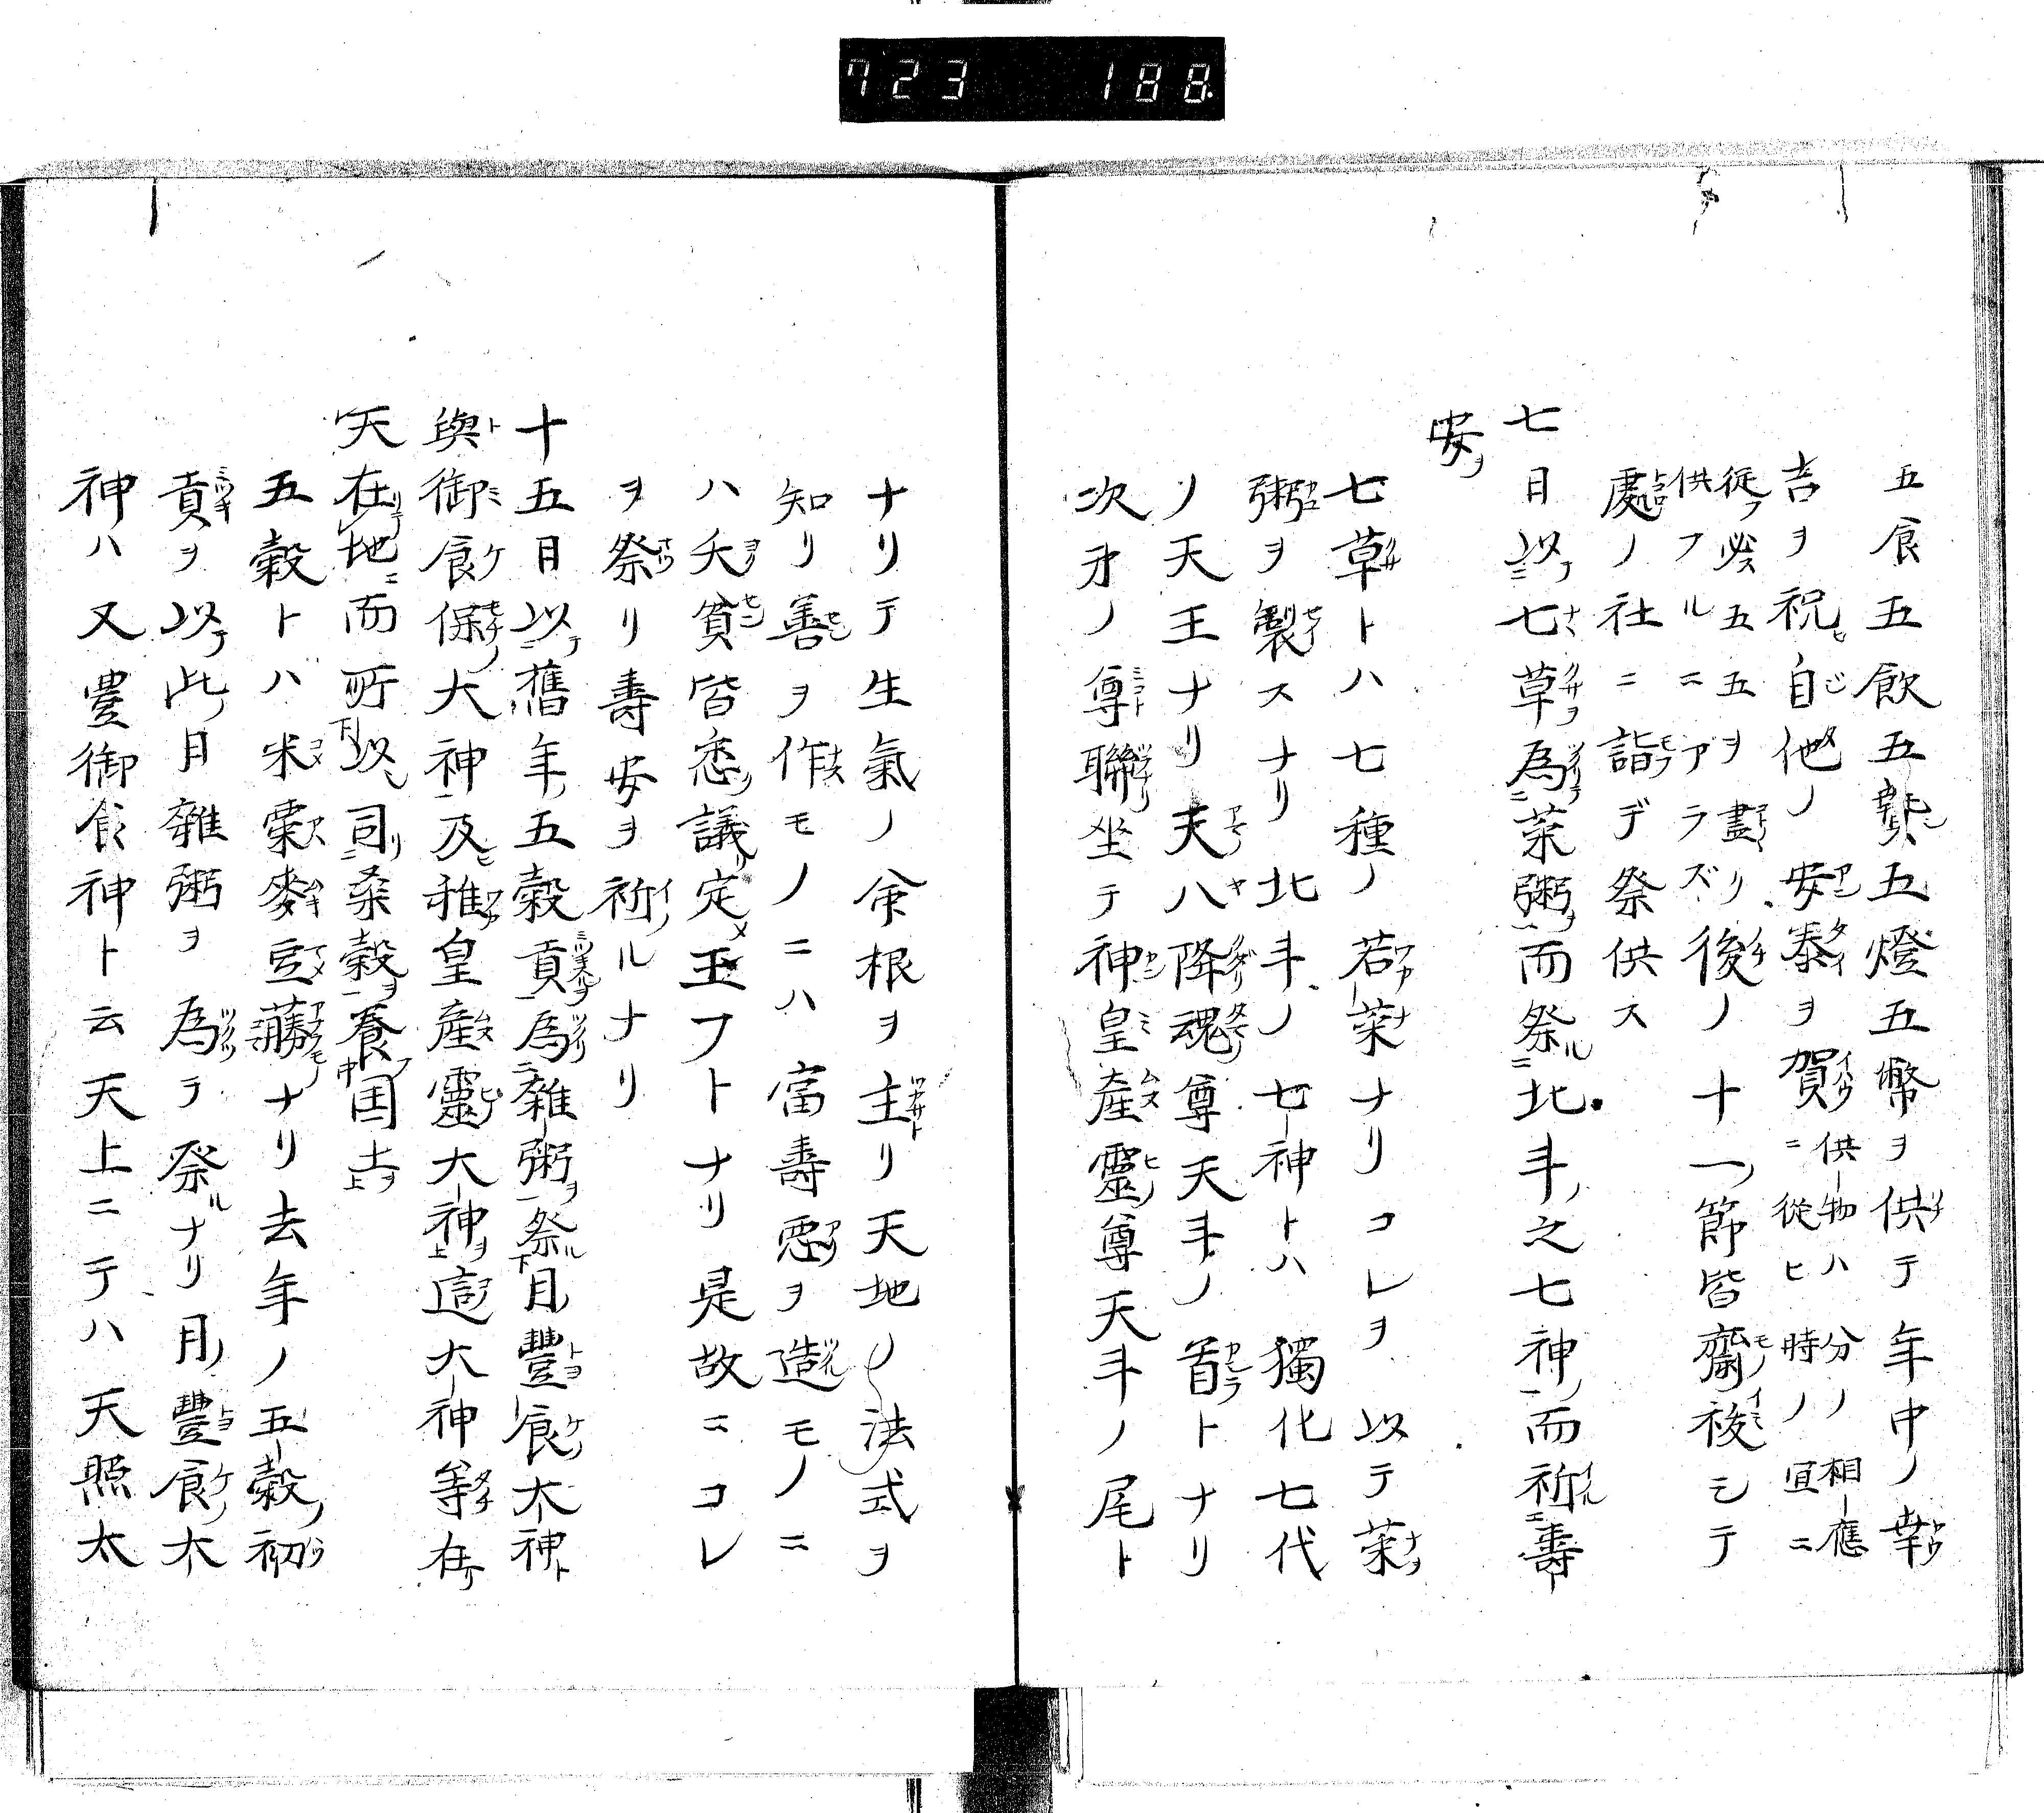 723 188
五食五飲五贄五燈五幣ヲ供テ年中ノ幸
吉ヲ祝自他ノ安泰ヲ賀ニ供物ハ分ノ相應
從ヒ時ノ宜ニ
從必五五ヲ盡リ
供フルニアラズ後ノ十一節皆齋祓シテ
處ノ社ニ詣デ祭供ス
七日以七草為菜粥而祭北斗之七神而祈壽
安
七草トハ七種ノ若菜ナリコレヲ以テ菜
粥ヲ製スナリ北斗ノ七神トハ獨化七代
ノ天王ナリ天八降魂尊天斗ノ首トナリ
次才ノ尊聯坐テ神皇産靈尊天斗ノ尾ト
ナリテ生氣ノ命根ヲ主リ天地ノ法式ヲ
知リ善ヲ作モノニハ富壽惡ヲ造モノニ
ハ夭貧皆悉議定玉フトナリ是故ニコレ
ヲ祭リ壽安ヲ祈ルナリ
十五日以舊年五穀貢為雜粥祭月豐食太神
與御食保大神及稚皇産靈大神迢大神等在
天在地而所以司桑穀養国土
五穀トハ米粟麥豆藻ナリ去年ノ五穀初
貢ヲ以此月雜粥ヲ為ラ祭ナリ月豐食太
神ハ又豊御食神ト云天上ニテハ天照太